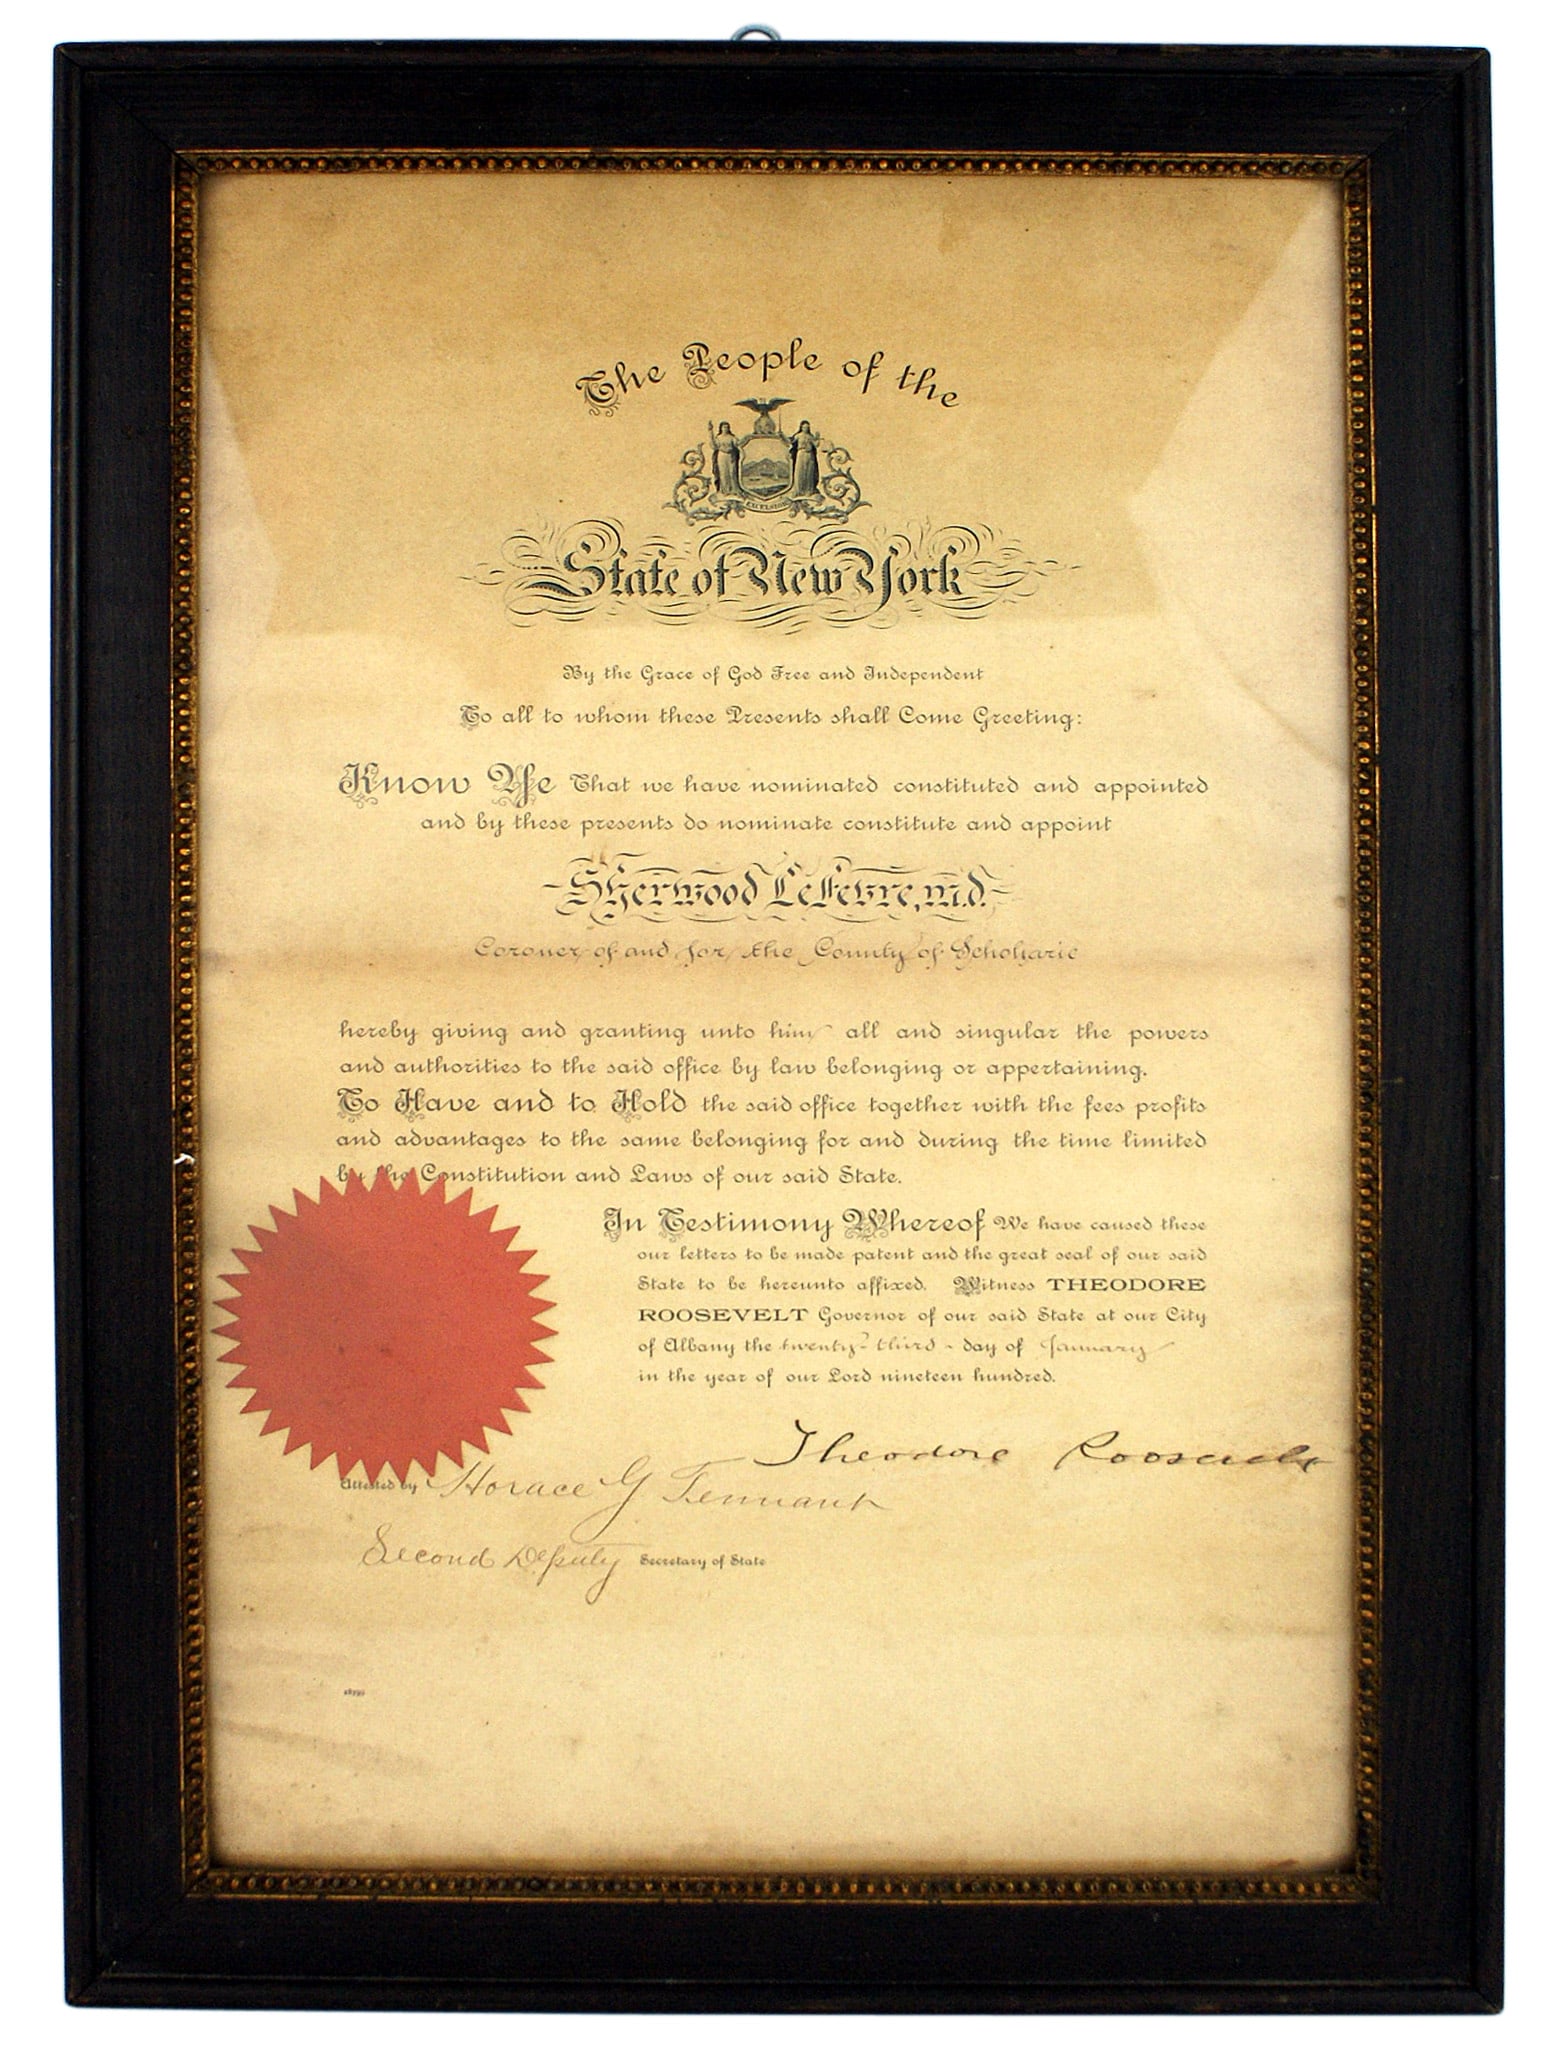 The People of the
EXCELSIOR
State of New York
By the Grace of God Free and Independent
To all to whom these Presents shall Come Greeting:
Know Ye That we have nominated constituted and appointed
and by these presents do nominate constitute and appoint
Sherwood LeFevre, M.D.
Coroner of and for the County of Schoharie
hereby giving and granting unto him all and singular the powers
and authorities to the said office by law belonging or appertaining.
To Have and to Hold the said office together with the fees profits
and advantages to the same belonging for and during the time limited
by the Constitution and Laws of our said State.
In Testimony Whereof We have caused these
our letters to be made patent and the great seal of our said
State to be hereunto affixed. Witness THEODORE
ROOSEVELT Governor of our said State at our City
of Albany the twenty-third day of January
in the year of our Lord nineteen hundred.
Theodore Roosevelt
Attested by Horace G Tennant
Second Deputy Secretary of State